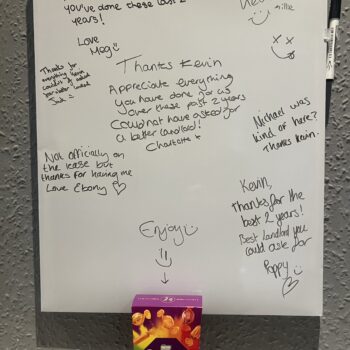 you've done these last 2
years!
Love
Meg
Thanks for
everything
Jack =
Thanks Kevin
Appreciate everything
you have done for us
over these past 2 years
Could not have asked for
a better landlord!
Charlotte x
Michael was
kind of here?
Thanks Kevin.
Not officially on
the lease but
thanks for having me
Love Ebony
Kevin,
Thanks for the
best 2 years!
Best landlord you
could ask for
Poppy
Enjoy